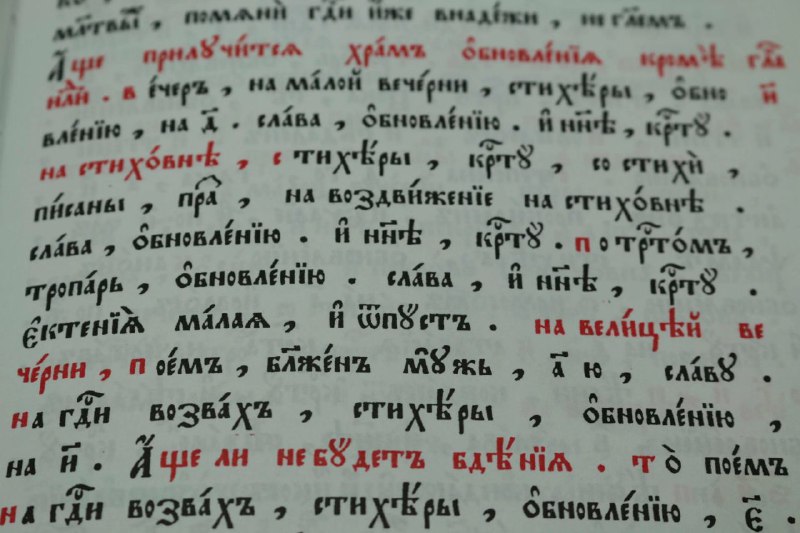 мл҃твы̀, помѧнѝ гдⷭ҇и и҆́же внадежи, не гл҃емъ.
А҆́ще прилꙋчи́тсѧ хра́мъ ѻ҆бновле́нїѧ кромѣ̀ гла́в
нѣ́й. в е́черъ, на ма́лой вече́рни, стихѣ́ры, ѻ҆бно и҃
вле́нїю, на д҃. сла́ва, ѻ҆бновле́нїю. и҆ ны́нѣ, крⷭ҇тꙋ̀.
на стихо́внѣ, стихѣ́ры, крⷭ҇тꙋ̀, со стихѝ,
пи́саны, пра̑, на воздви́женїе на стихо́внѣ.
сла́ва, ѻ҆бновле́нїю. и҆ нн҃ѣ, крⷭ҇тꙋ̀. по трⷭ҇то́мъ,
тропа́рь, ѻ҆бновле́нїю. сла́ва, и҆ нн҃ѣ, крⷭ҇тꙋ̀.
є҆ктенїѧ̀ ма́лаѧ, и҆ ѿпꙋстъ. на вели́цѣй ве
че́рни, пое́мъ, бл҃же́нъ мꙋ́жь, а҃ ю, сла́вꙋ.
на гдⷭ҇и возва́хъ, стихѣ́ры, ѻ҆бновле́нїю,
на и҃. А҆́ще ли не бꙋ́детъ бдѣ́нїѧ. то̀ пое́мъ
на гдⷭ҇и возва́хъ, стихѣ́ры, ѻ҆бновле́нїю, є҃.